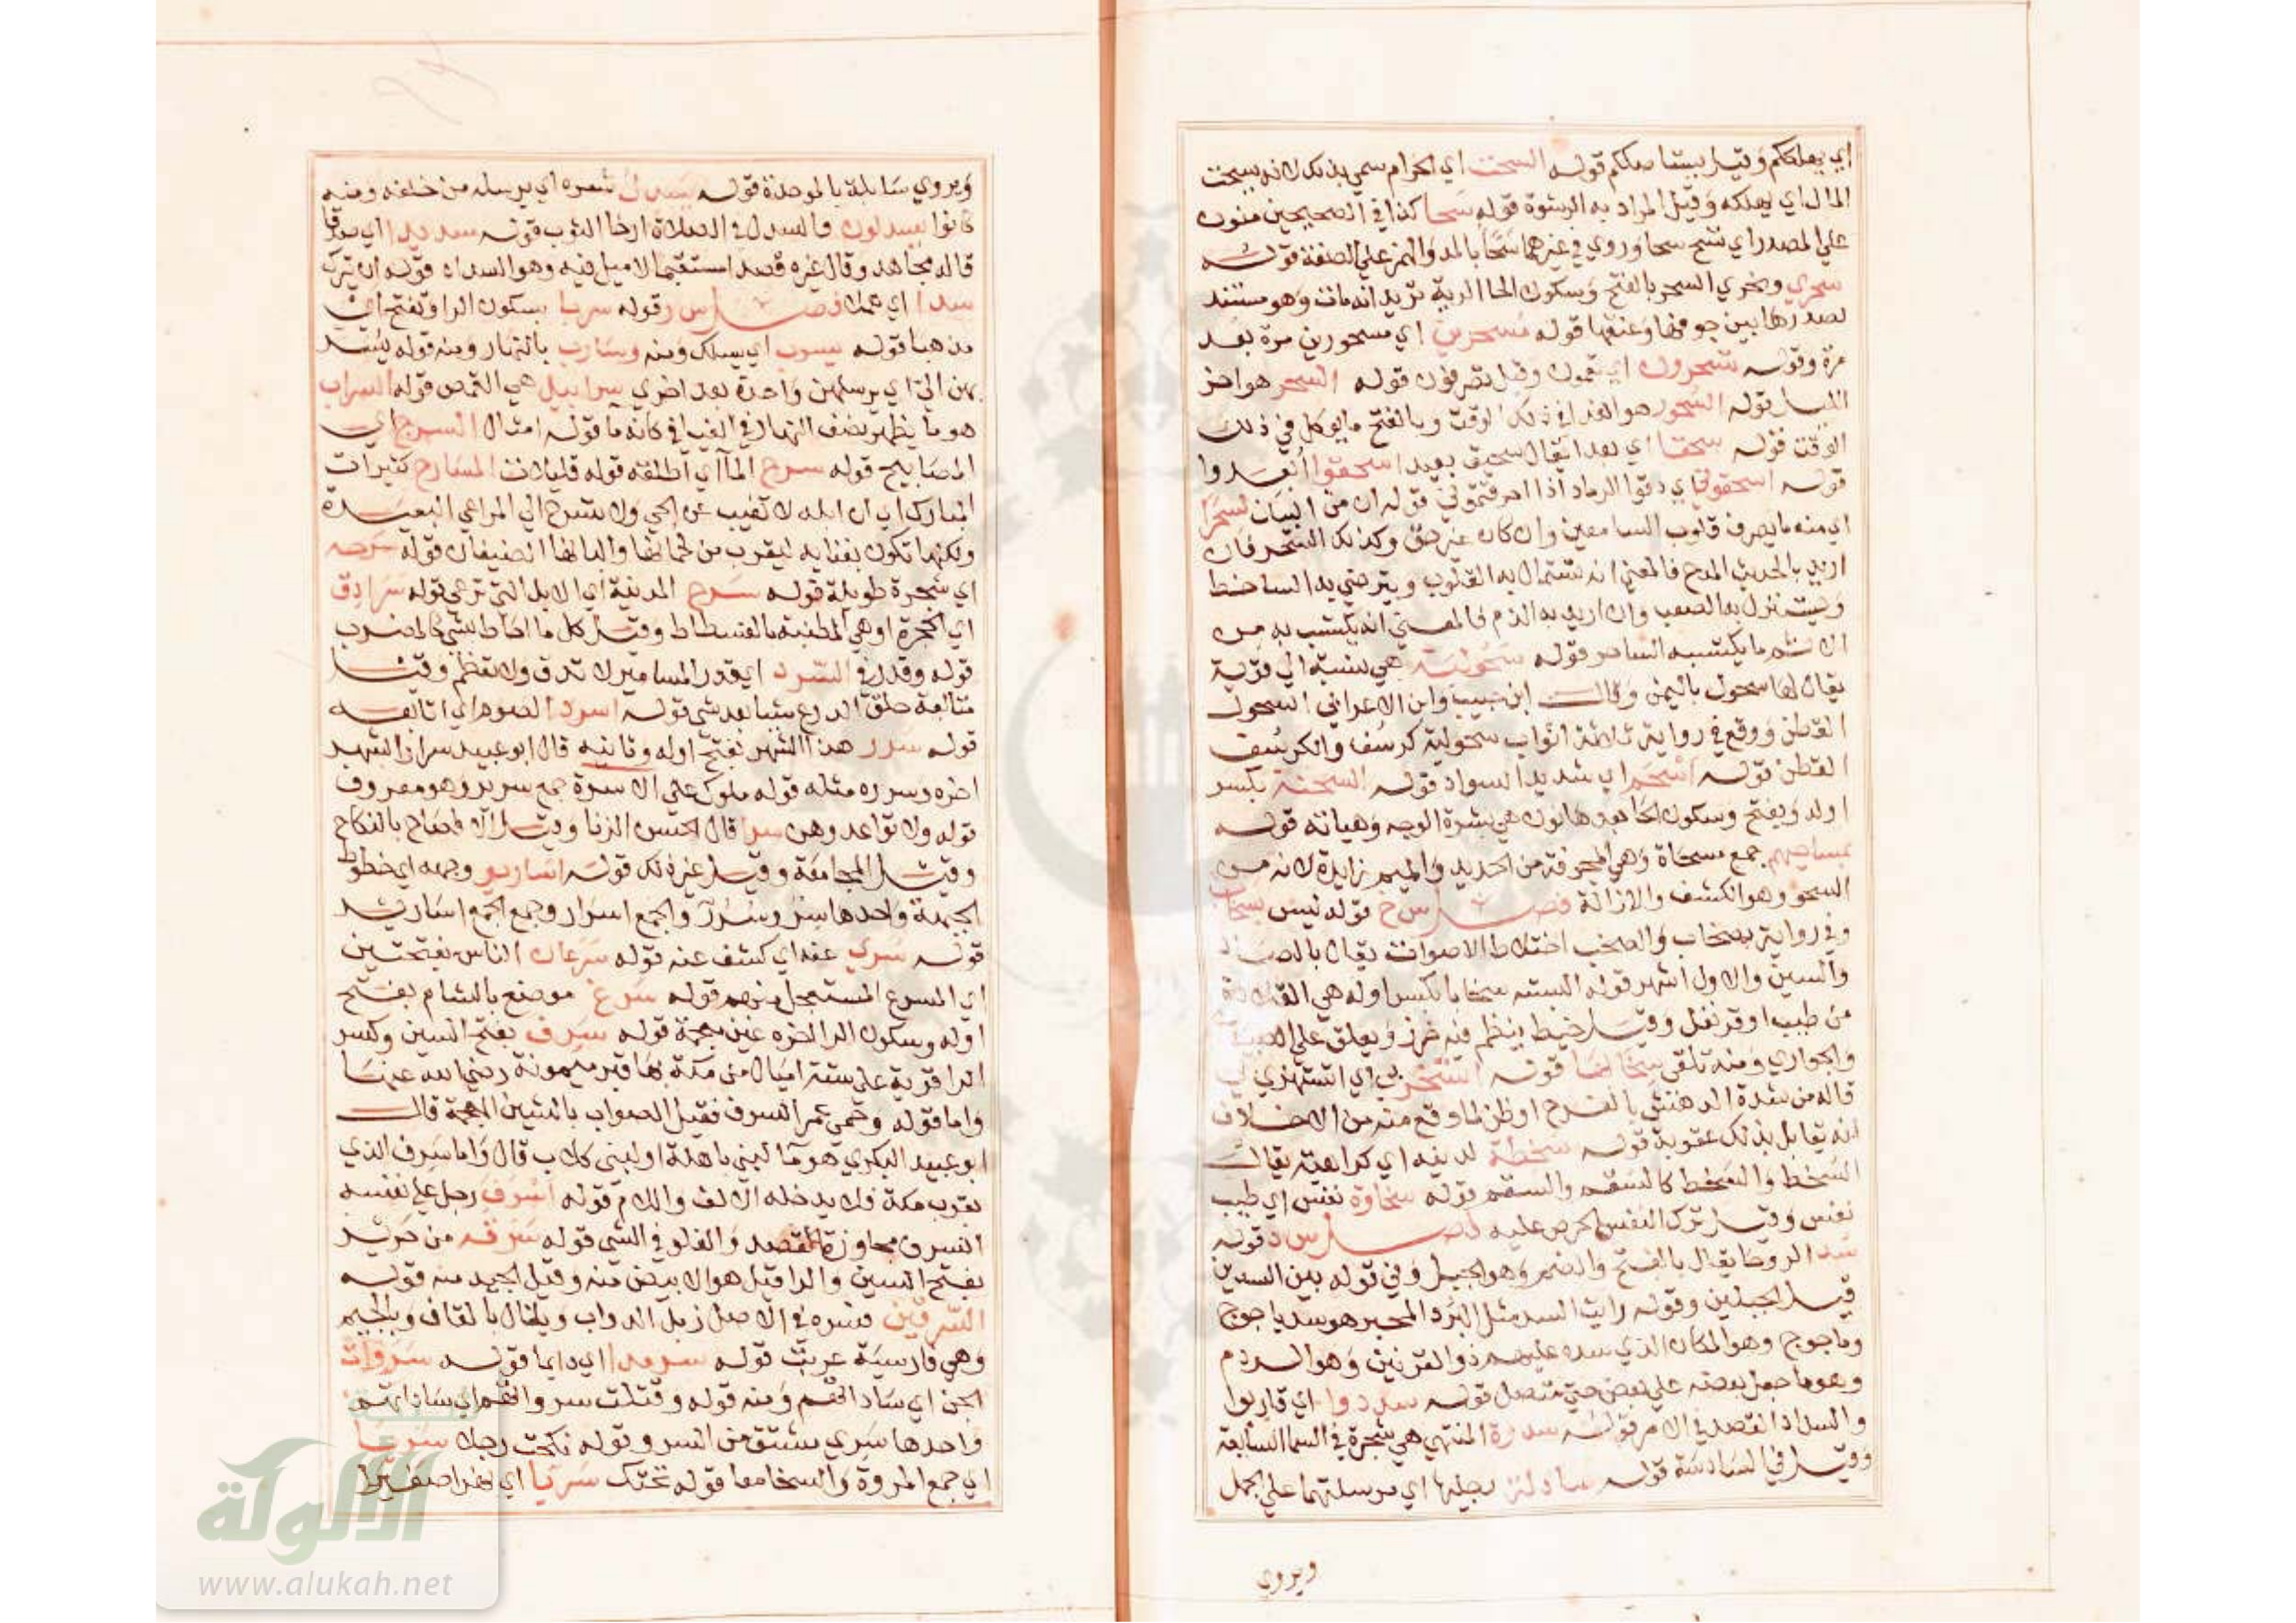 اي يهلككم وقيل يستاصلكم قوله السحت اي الحرام سمي بذلك لانه يسحت
المال اي يهلكه وقيل المراد به الرشوة قوله سحا كذا في الصحيحين منون
علي المصدر اي تسح سحا وروي في غيرهما سحاء بالمد والهمز علي الصفة قوله
سحري ونحري السحر بالفتح وسكون الحا الرية تريد انه مات وهو مستند
لصدرها بين جوفها وعنقها قوله مسحرين اي مسحورين مرة بعد
مرة وقوله تسحرون اي تعمون وقيل تصرفون قوله السحر هو اخر
الليل قوله السحور هو الغدا في ذلك الوقت وبالفتح ما يوكل في ذلك
الوقت قوله سحقا اي بعدا يقال سحيق بعيد اسحقوا ابعدوا
قوله اسحقوني اي دقوا الرماد اذا احرقتموني قوله ان من البيان لسحرا
اي منه ما يصرف قلوب السامعين وان كان غير حق وكذلك السحر فان
اريد بالحديث المدح فالمعني انه تستمال به القلوب ويترضي به الساخط
ويستنزل به الصعب وان اريد به الذم فالمعني انه يكتسب به من
الاثم ما يكتسبه الساحر قوله سحولية هي نسبة الي قرية
يقال لها سحول باليمن وقال ابن حبيب وابن الاعرابي السحول
القطن ووقع في رواية ثلاثة اثواب سحولية كرسف والكرسف
القطن قوله اسحم اي شديد السواد قوله السحنة بكسر
اوله ويفتح وسكون الحا بعدها نون هي بشرة الوجه وهياته قوله
بمساحيهم جمع مسحاة وهي المجرفة من الحديد والميم زايدة لانه من
السحو وهو الكشف والازالة فصل س خ قوله ليس بسخاب
وفي رواية بصخاب والصخب اختلاط الاصوات يقال بالصاد
والسين والاول اشهر قوله البسته سخابا بكسر اوله هي القلادة
من طيب او قرنفل وقيل خيط ينظم فيه خرز ويعلق علي
والجواري ومنه تلقي سخابها قوله اتسخر بي اي اتستهزي بي
قاله من شدة الدهش بالفرح او ظن لما وقع منه من الاخلاف
انه يقابل بذلك عقوبة قوله سخطة لدينه اي كراهية يقال
السخط والسخط كالسقم والسقم قوله سخاوة نفس اي طيب
نفس وقيل ترك النفس الحرص عليه فصل س د قوله
سد الروحا يقال بالفتح والضم وهو الجبل وفي قوله بين السدين
قيل الجبلين وقوله رايت السد مثل البرد المحبر هو سد ياجوج
وماجوج وهو المكان الذي سده عليهم ذو القرنين وهو الردم
وهو ما جعل بعضه علي بعض حتي يتصل قوله سددوا اي قاربوا
والسداد القصد في الامر قوله سدرة المنتهي هي شجرة في السما السابعة
وقيل في السادسة قوله سادلة رجليها اي مرسلتهما علي الجمل
ويروي
ويروي سابلة بالموحدة قوله يسدل شعره اي يرسله من خلفه ومنه
كانوا يسدلون والسدل في الصلاة ارخا الثوب قوله سديدا اي صدقا
قاله مجاهد وقال غيره قصدا مستقيما لا ميل فيه وهو السداد قوله ان يترك
سدا اي هملا فصل س ر قوله سربا بسكون الرا وتفتح اي
مذهبا قوله يسرب اي يسلك ومنه وسارب بالنهار ومنه قوله يسرب
بهن الي اي يرسلهن واحدة بعد اخري سرابيل هي القمص قوله السراب
هو ما يظهر نصف النهار في الفيافي كانه ما قوله امثال السرج اي
المصابيح قوله سرح الماء اي اطلقه قوله قليلات المسارح كثيرات
المبارك اي ان ابله لا تغيب عن الحي ولا تسرح الي المراعي البعيدة
ولكنها تكون بفنايه ليقرب من لحمانها والبانها الضيفان قوله سرحة
اي شجرة طويلة قوله سرح المدينة اي الابل التي ترعي قوله سرادق
اي الحجرة او هي المطنبة بالفسطاط وقيل كل ما احاط بشي كالمضرب
قوله وقدر في السرد اي قدر المسامير لا تدق ولا تعظم وقيل
متابعة حلق الدرع شيا بعد شي قوله اسرد الصوم اي اتابعه
قوله سرر هذا الشهر بفتح اوله وثانيه قال ابو عبيد سرار الشهر
اخره وسرره مثله قوله ملوك علي الاسرة جمع سرير وهو معروف
قوله ولا تواعدوهن سرا قال الحسن الزنا وقيل الافصاح بالنكاح
وقيل المجامعة وقيل غير ذلك قوله اسارير وجهه اي خطوط
الجبهة واحدها سر وسرر والجمع اسرار وجمع الجمع اسارير
قوله سري عنه اي كشف عنه قوله سرعان الناس بفتحتين
اي المسرع المستعجل منهم قوله سرغ موضع بالشام بفتح
اوله وسكون الرا اخره غين معجمة قوله سرف بفتح السين وكسر
الرا قرية علي ستة اميال من مكة بها قبر ميمونة رضي الله عنها
واما قوله وحمي عمر السرف فقيل الصواب بالشين المعجمة قال
ابو عبيد البكري هو ما لبني باهلة او لبني كلاب قال واما سرف الذي
بقرب مكة فلا يدخله الالف واللام قوله اسرف رجل علي نفسه
السرف مجاوزة القصد والغلو في الشي قوله سرقة من حرير
بفتح السين والرا قيل هو الابيض منه وقيل الجيد منه قوله
السرقين فسره في الاصل زبل الدواب ويقال بالقاف وبالجيم
وهي فارسية عربت قوله سرمدا اي دايما قوله سروات
الجن اي ساداتهم ومنه قوله وقتلت سرواتهم اي ساداتهم
واحدها سري مشتق من السرو وقوله نكحت رجلا سريا
اي جمع المروة والسخا معا قوله تحتك سريا اي نهرا صغيرا
الألولة
www.alukah.net